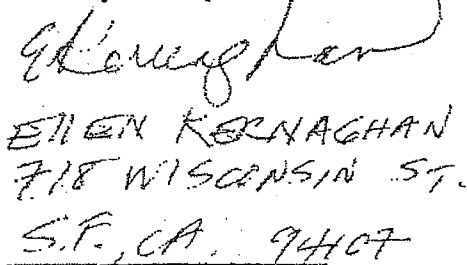 E Kernaghan
EllEN KERNAGHAN
718 WISCONSIN ST.
S.F., CA. 94107